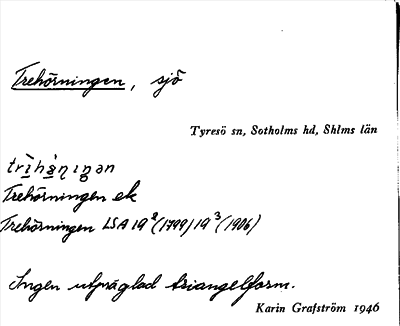 Trehörningen, sjö
Tyresö sn, Sotholms hd, Shlms län
Trehörningen ek
Trehörningen LSA 19² (1799) 19³ (1906)
Ingen utpräglad triangelform.
Karin Grafström 1946